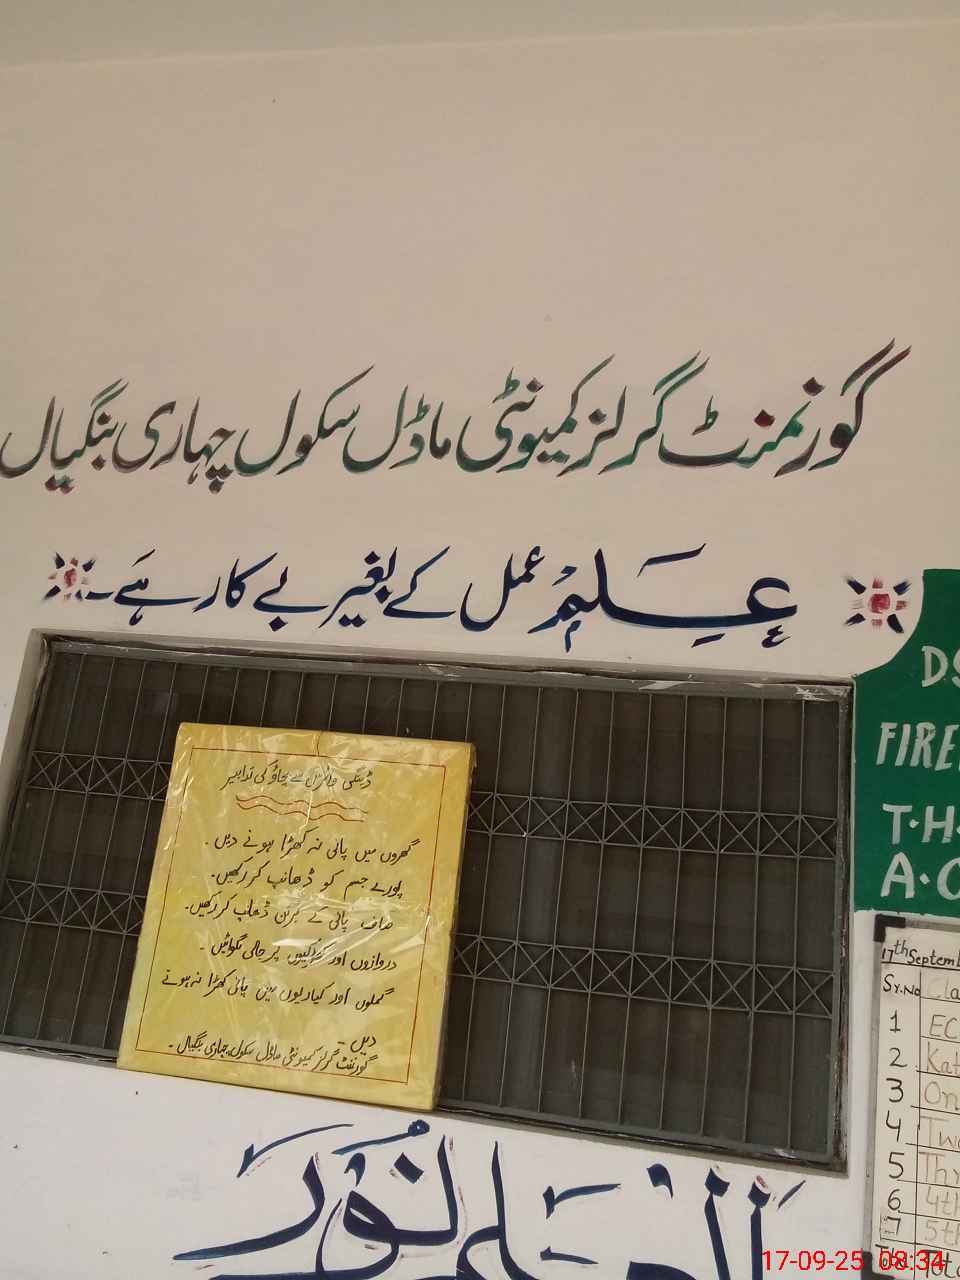 گورنمنٹ گرلز کمیونٹی ماڈل سکول چہاری بنگیال
عِلم عمل کے بغیر بے کار ہے۔
ڈینگی وائرس سے بچاؤ کی تدابیر
گھروں میں پانی نہ کھڑا ہونے دیں۔
پورے جسم کو ڈھانپ کر رکھیں۔
صاف پانی کے برتن ڈھانپ کر رکھیں۔
دروازوں اور کھڑکیوں پر جالی لگوائیں۔
گملوں اور کیاریوں میں پانی کھڑا نہ ہونے
دیں۔
گورنمنٹ گرلز کمیونٹی ماڈل سکول چہاری بنگیال۔
العلم نُور
DS
FIRE
T.H.
A.
17th Septemb
Sr.No Cla
1 EC
2 Kat
3 On
4 Two
5 Thr
6 4th
7 5th
Tot
17-09-25 08:34